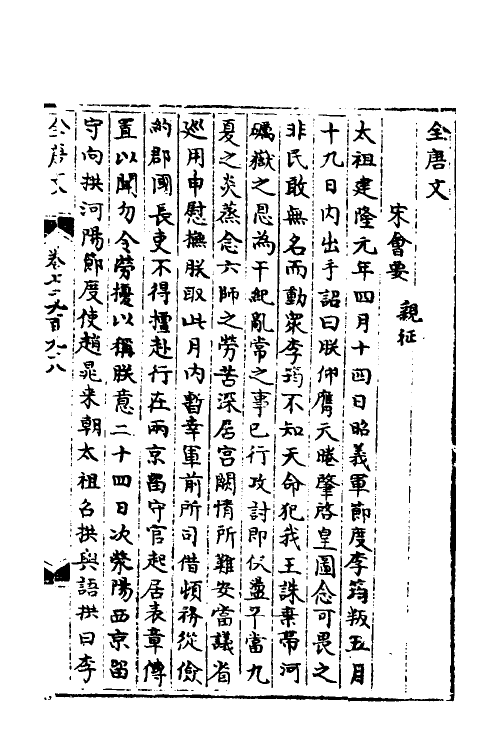 全唐文
宋會要
親征
太祖建隆元年四月十四日昭義軍節度李筠叛五月
十九日内出手詔曰朕仰膺天睠肇啓皇圖念可畏之
非民敢無名而動衆李筠不知天命犯我王誅棄帶河
礪嶽之恩為干紀亂常之事已行攻討即俟盪平當九
夏之炎蒸念六師之勞苦深居宮闕情所難安當議省
廵用申慰撫朕取此月内暫幸軍前所司借頓務從儉
約郡國長吏不得擅赴行在兩京留守官起居表章傳
置以聞勿令勞擾以稱朕意二十四日次滎陽西京留
守向拱河陽節度使趙晁来朝太祖召拱與語拱曰李
全唐文